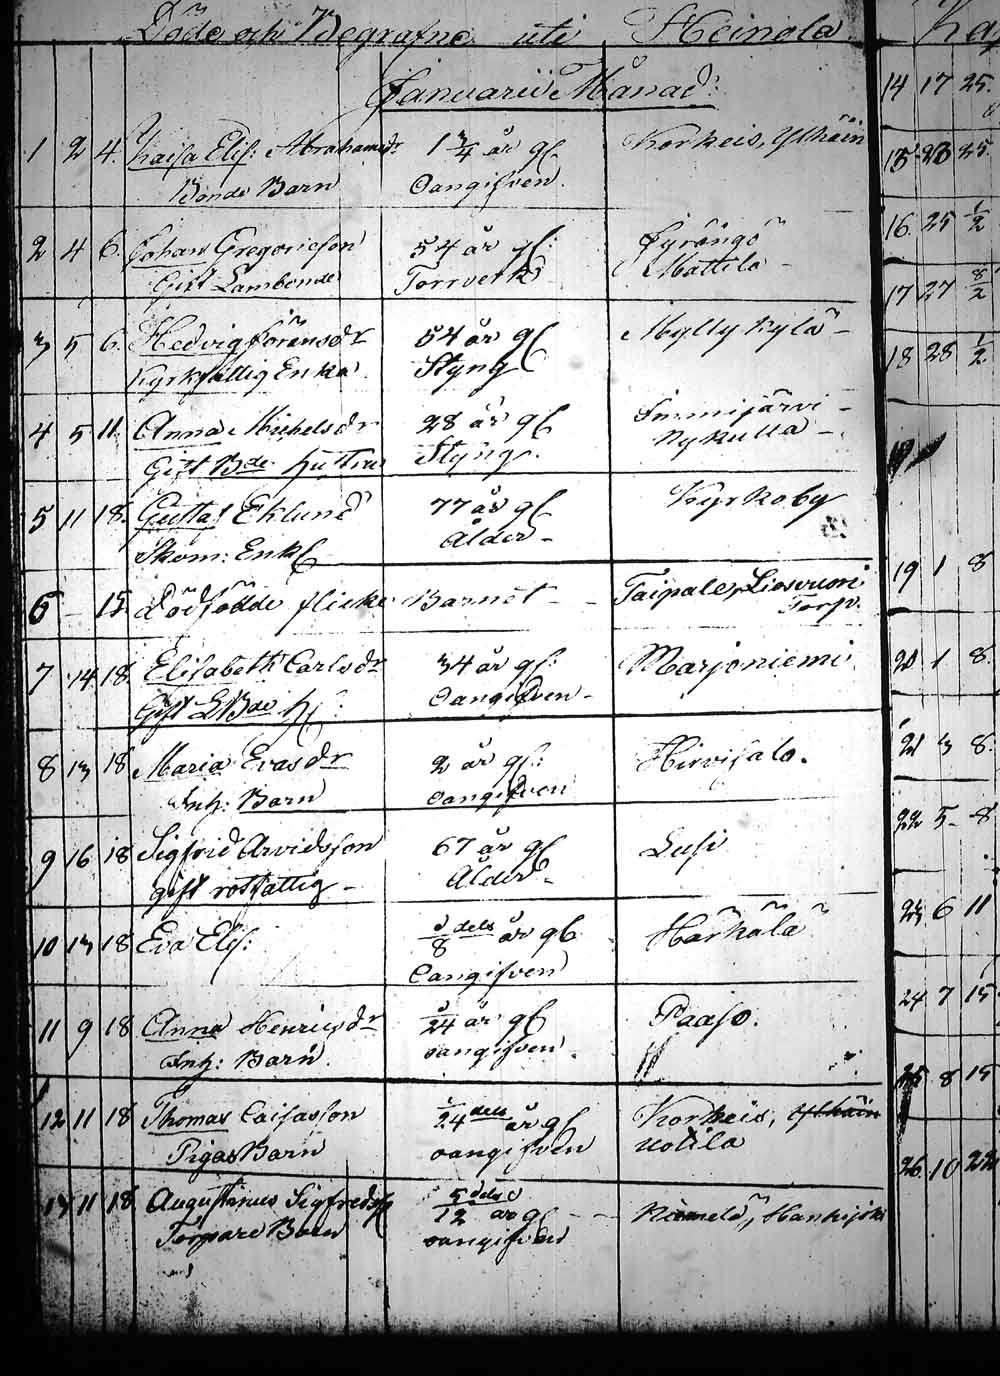 Döde och Begrafne uti Heinola
Januarii Månad:
1 2 4. Kaisa Elis: Abrahamsdr 1 3/4 år gl. Korkeis, Ylhäin
Bonde Barn Oangifven
2 4 6. Johan Gregorieson 54 år gl: Jyrängö
Gift Lambonde Torrverk Mattila
3 5 6. Hedvig Göransdr 54 år gl Myllykylä
Kyrkfattig Enka Styng
4 5 11. Anna Michelsdr 28 år gl Immijärvi
Gift Bde hustru Styng. Nykulla
5 11 18. Gustaf Eklund 77 år gl Kyrkoby
Skom: Enkl Ålder
6 - 15 Dödfödde flicke Barnet Taipale,
Torp.
7 14 18. Elisabeth Carlsdr 34 år gl: Marjoniemi
Gift LBde h. Oangifven
8 13 18 Maria Evasdr 2 år gl: Hirvisalo.
Inh: Barn oangifven
9 16 18 Sigfrid Arvidsson 67 år gl Lusi
gift rotfattig Ålder
10 13 18 Eva Elis: 8 dels år gl Härkälä
Oangifven
11 9 18 Anna Henricsdr /24 år gl Paaso.
Inh: Barn. oangifven
12 11 18 Thomas Caisasson /24 dels år gl Korkeis, Ylhäin
Pigas Barn oangifven Uotila
13 11 18 Augustinus Sigfredss 5/12 dels år gl Niemelä,
Torpare Barn oangifven
14 17 25.
15 23 25
16 25 1/2
17 27 8/2
18 28 1/2
19 1 8
20 1 8.
21 3 8.
22 5 8
23 6 11
24 7 15
25 8 15
26. 10 22